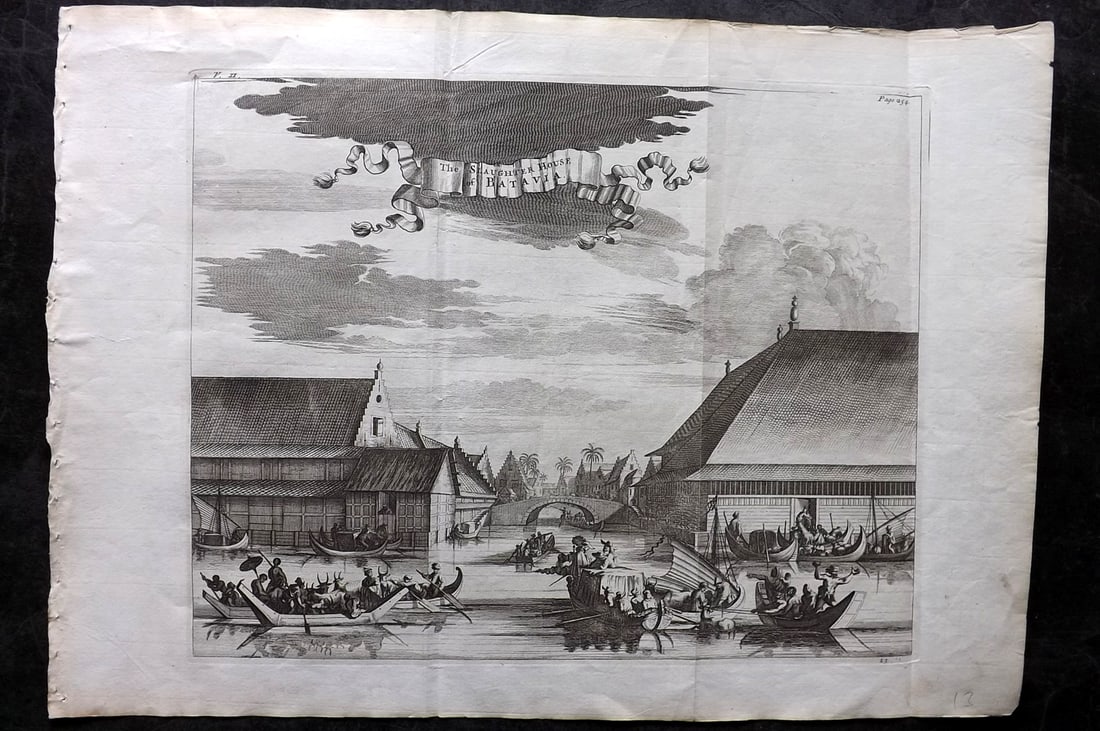 V. II.
Page 254
The SLAUGHTER HOUSE
of BATAVIA
13